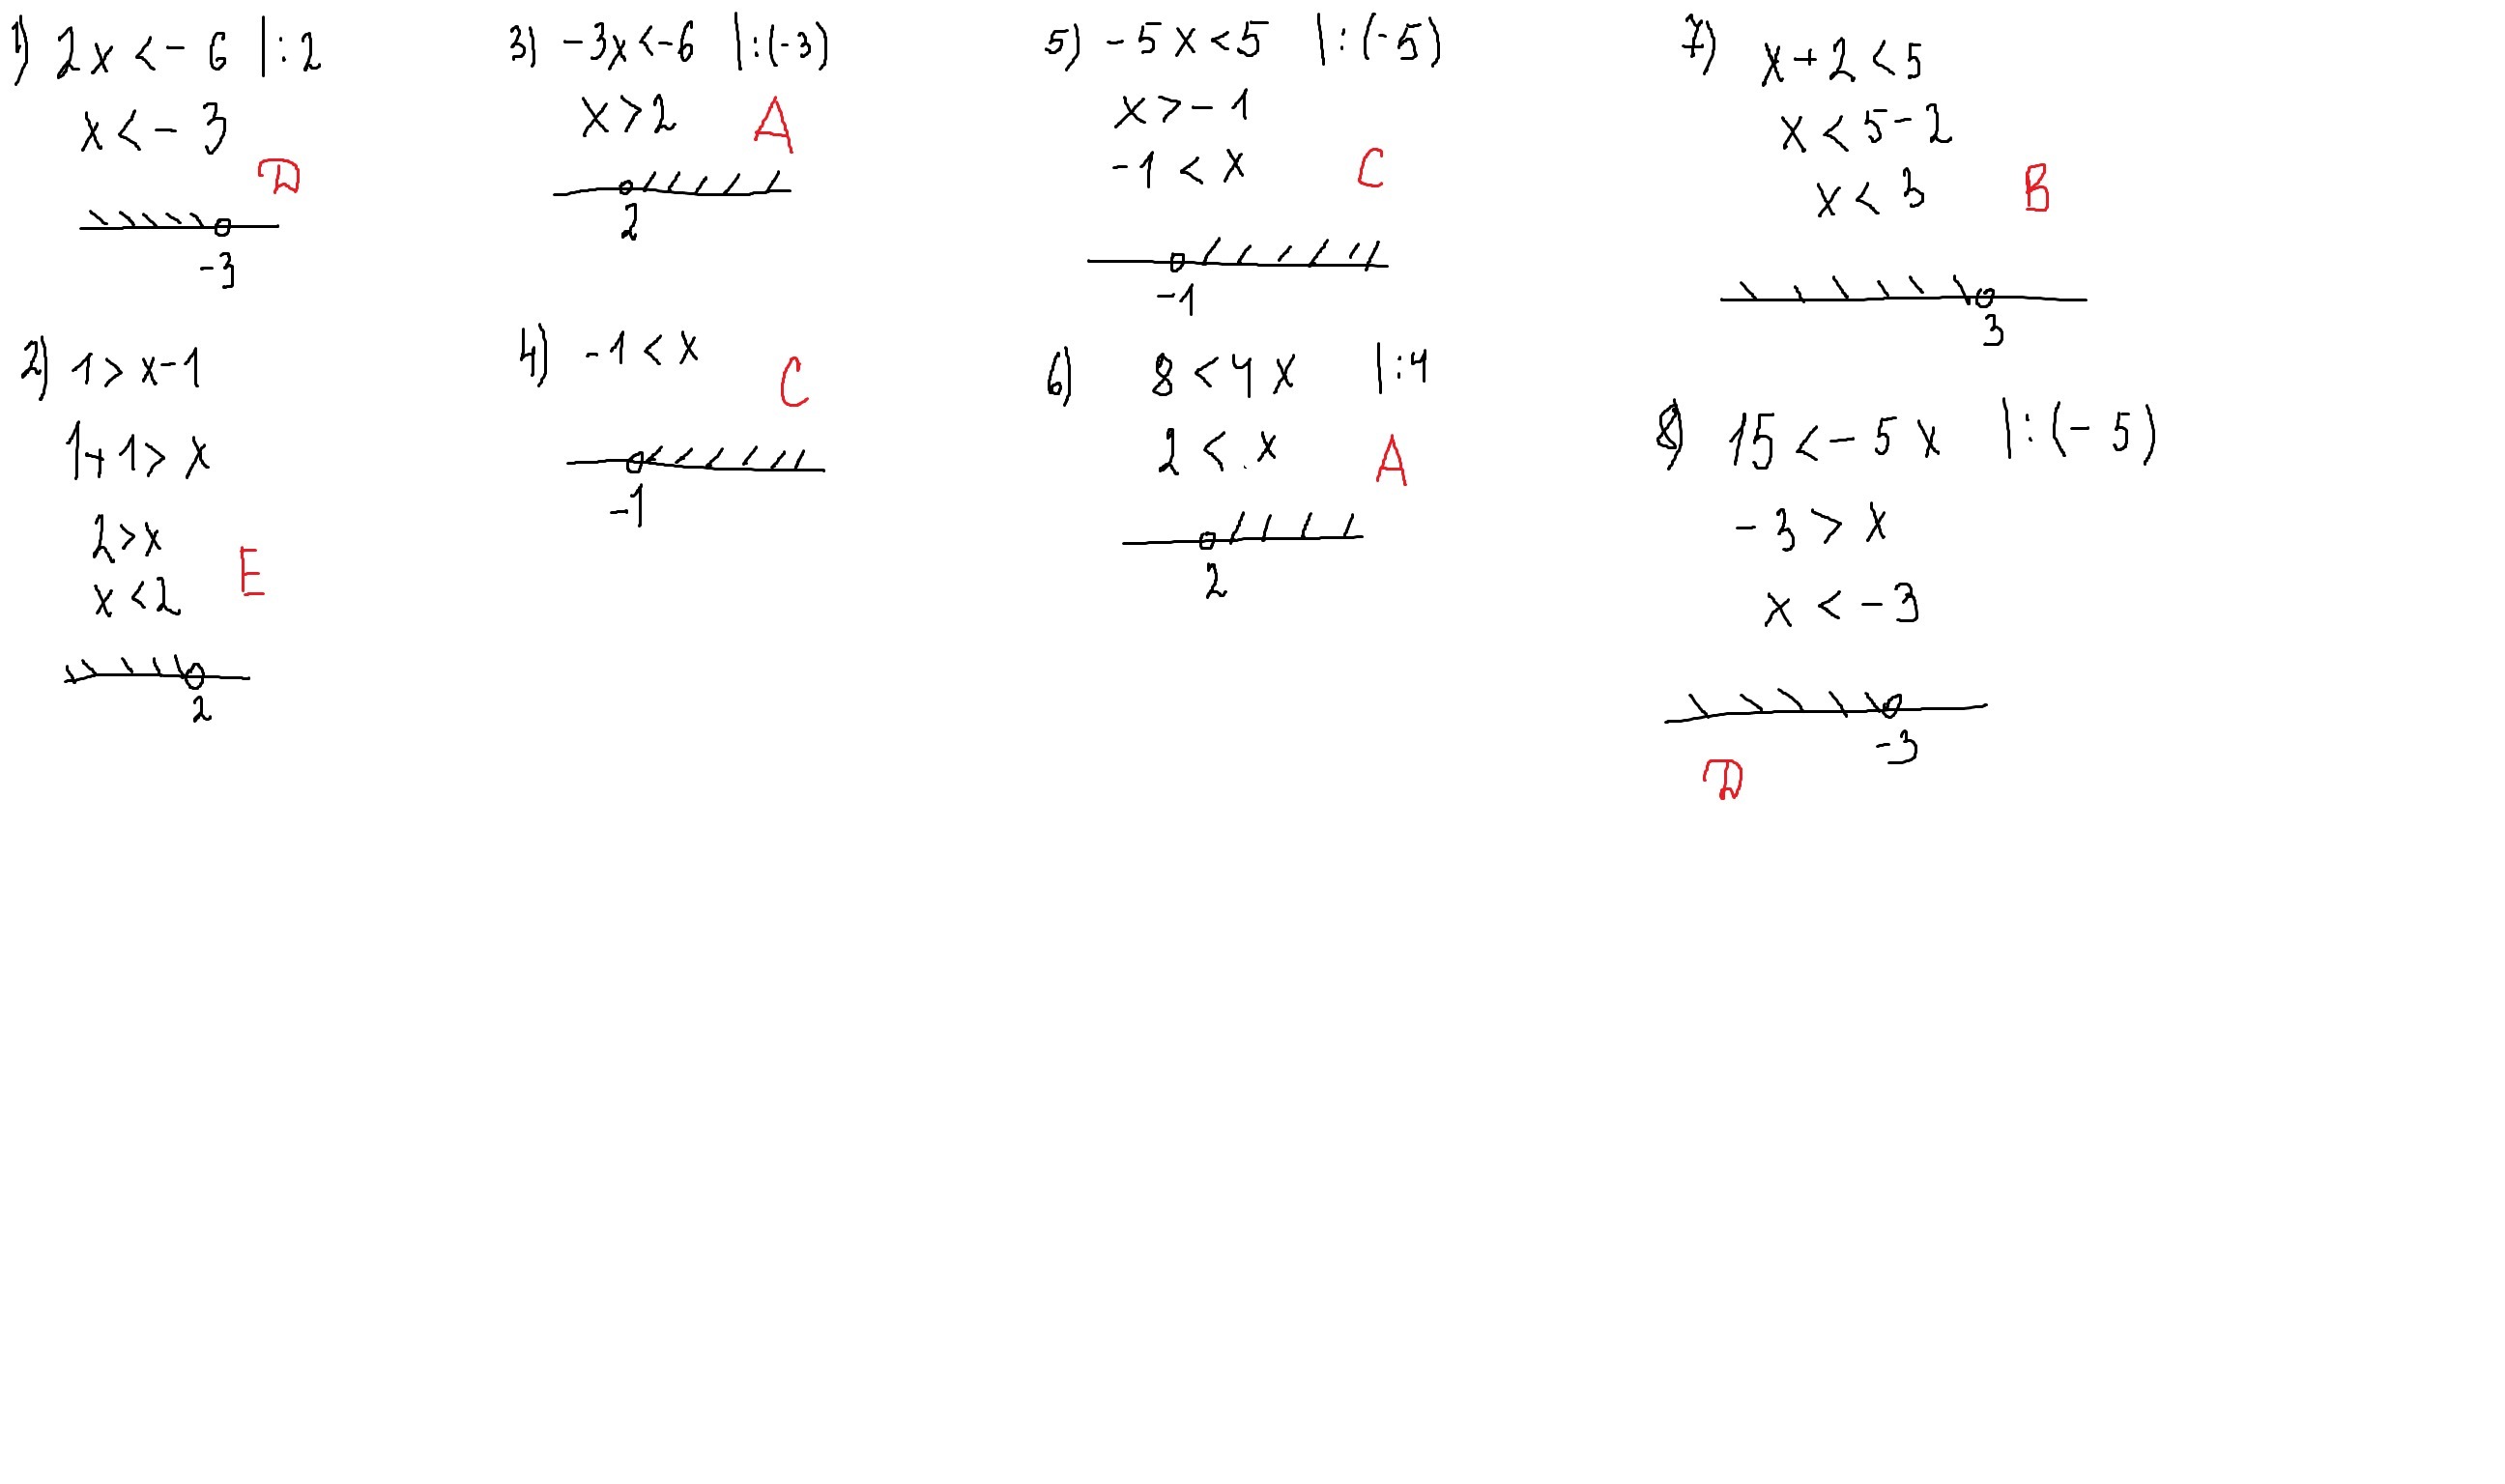 1) 2x < - 6 |: 2
x < - 3
D
-3
2) 1 > x - 1
1 + 1 > x
2 > x
x < 2
E
2
3) -3x < -6 |: (-3)
x > 2
A
2
4) -1 < x
C
-1
5) -5x < 5 |: (-5)
x > - 1
-1 < x
C
-1
6) 8 < 4x |: 4
2 < x
A
2
7) x + 2 < 5
x < 5 - 2
x < 3
B
3
8) 15 < - 5x |: (- 5)
- 3 > x
x < - 3
-3
D